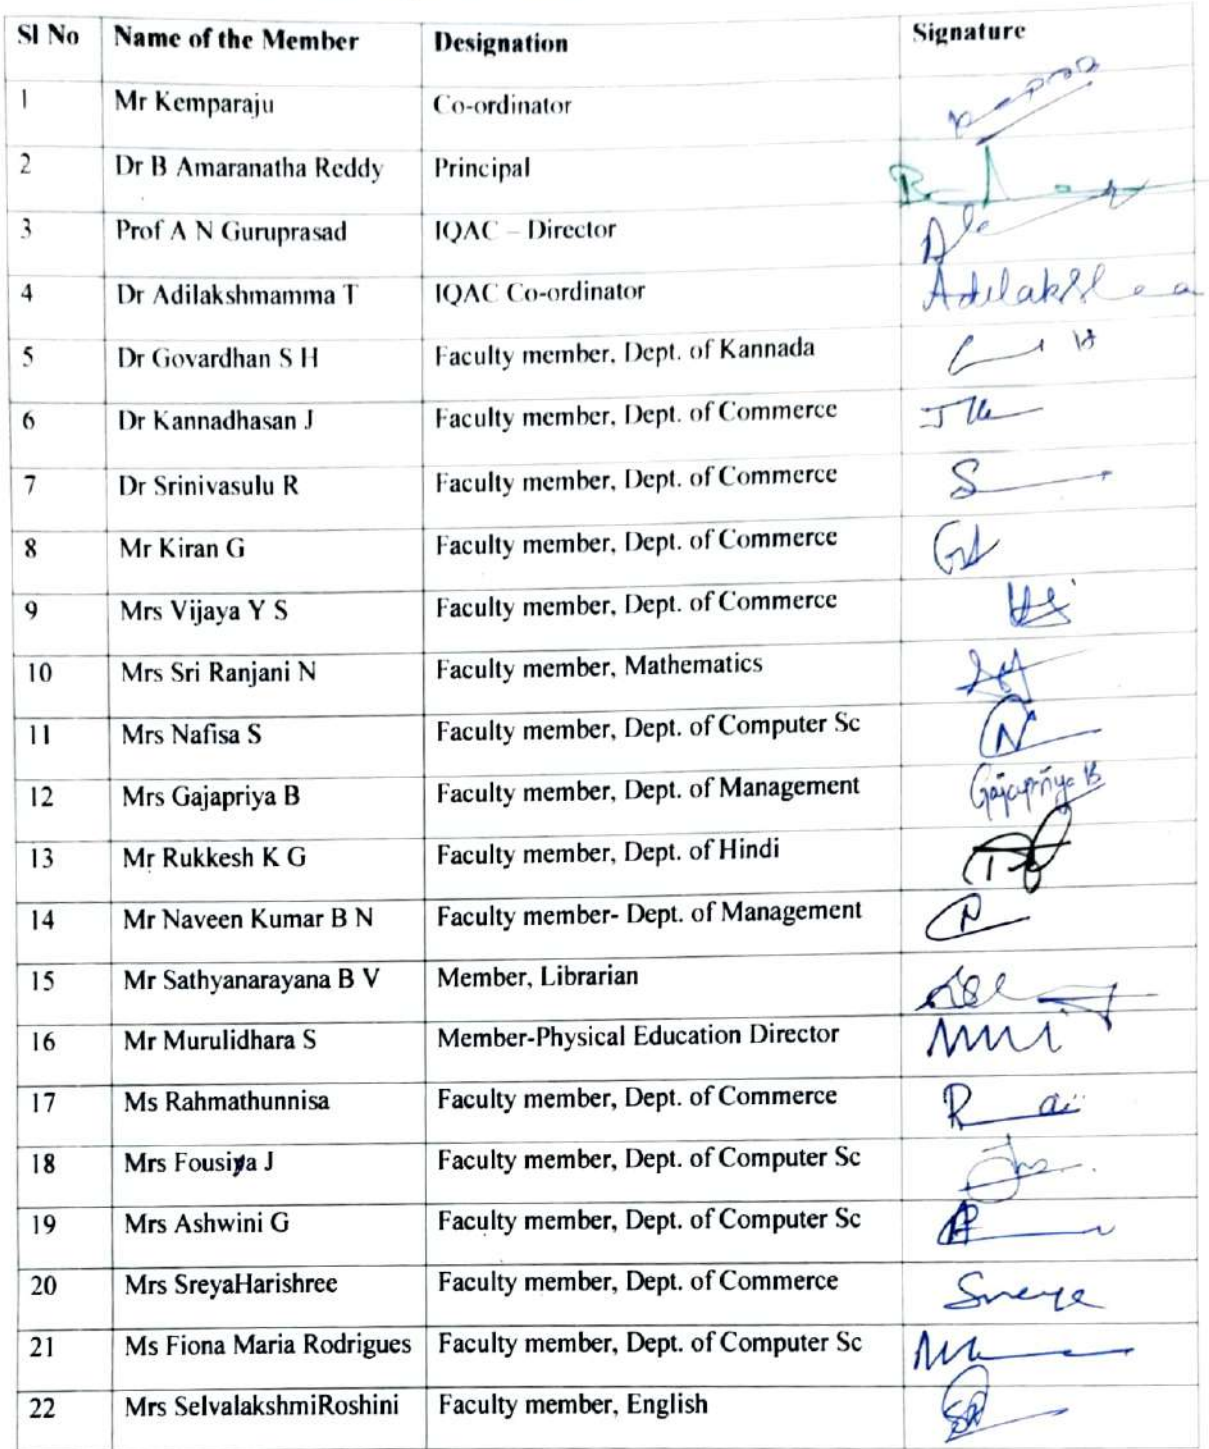 Sl No Name of the Member Designation Signature
1 Mr Kemparaju Co-ordinator
2 Dr B Amaranatha Reddy Principal
3 Prof A N Guruprasad IQAC – Director
4 Dr Adilakshmamma T IQAC Co-ordinator
5 Dr Govardhan S H Faculty member, Dept. of Kannada
6 Dr Kannadhasan J Faculty member, Dept. of Commerce
7 Dr Srinivasulu R Faculty member, Dept. of Commerce
8 Mr Kiran G Faculty member, Dept. of Commerce
9 Mrs Vijaya Y S Faculty member, Dept. of Commerce
10 Mrs Sri Ranjani N Faculty member, Mathematics
11 Mrs Nafisa S Faculty member, Dept. of Computer Sc
12 Mrs Gajapriya B Faculty member, Dept. of Management Gajapriya B
13 Mr Rukkesh K G Faculty member, Dept. of Hindi
14 Mr Naveen Kumar B N Faculty member- Dept. of Management
15 Mr Sathyanarayana B V Member, Librarian
16 Mr Murulidhara S Member-Physical Education Director
17 Ms Rahmathunnisa Faculty member, Dept. of Commerce
18 Mrs Fousiya J Faculty member, Dept. of Computer Sc
19 Mrs Ashwini G Faculty member, Dept. of Computer Sc
20 Mrs SreyaHarishree Faculty member, Dept. of Commerce Sreya
21 Ms Fiona Maria Rodrigues Faculty member, Dept. of Computer Sc
22 Mrs SelvalakshmiRoshini Faculty member, English